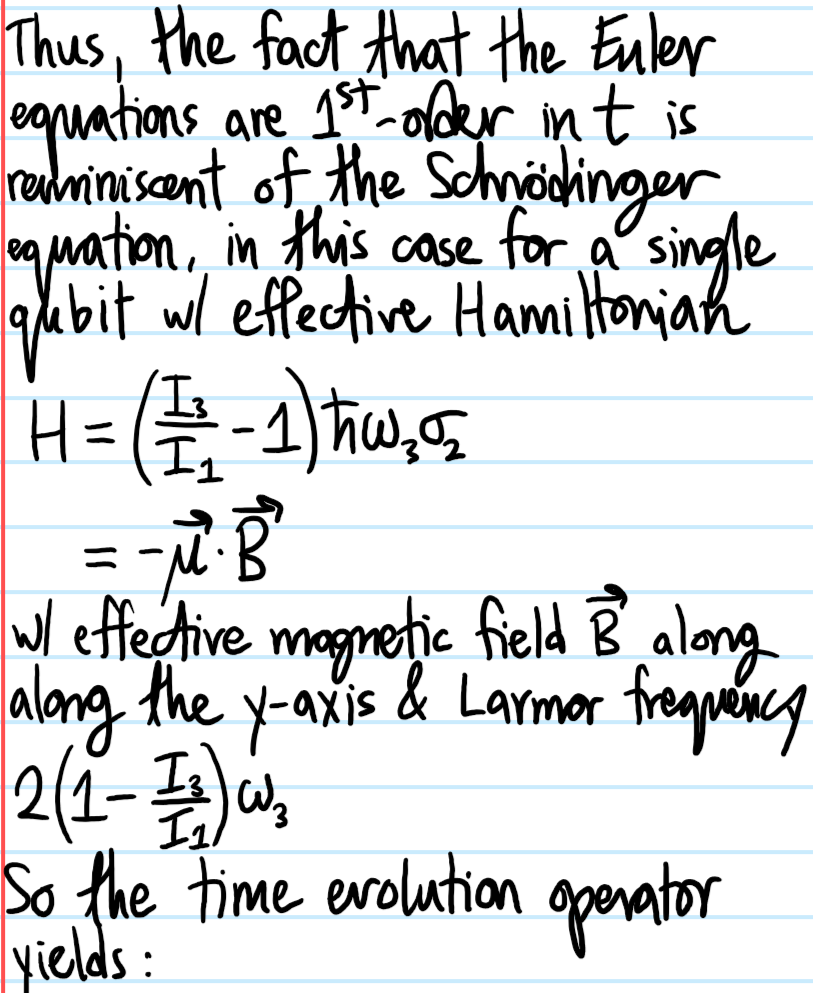 Thus, the fact that the Euler
equations are 1st-order in t is
reminiscent of the Schrödinger
equation, in this case for a single
qubit w/ effective Hamiltonian
H = (I₃/I₁ - 1) ħω₃σ₂
= -μ⃗ · B⃗
w/ effective magnetic field B⃗ along
along the y-axis & Larmor frequency
2(1 - I₃/I₁) ω₃
So the time evolution operator
yields: